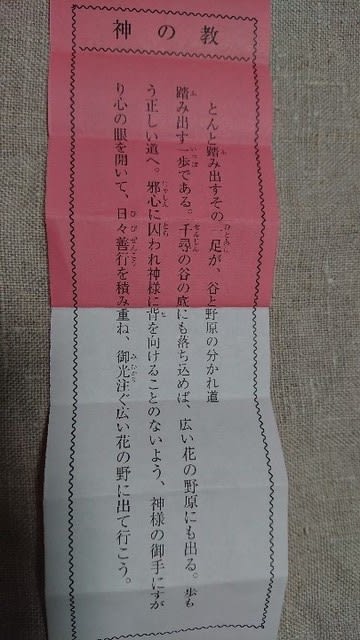 神の教
とんと踏み出すその一足が、谷と野原の分かれ道
踏み出す一歩である。千尋の谷の底にも落ち込めば、広い花の野原にも出る。歩も
う正しい道へ。邪心に囚われ神様に背を向けることのないよう、神様の御手にすが
り心の眼を開いて、日々善行を積み重ね、御光注ぐ広い花の野に出て行こう。